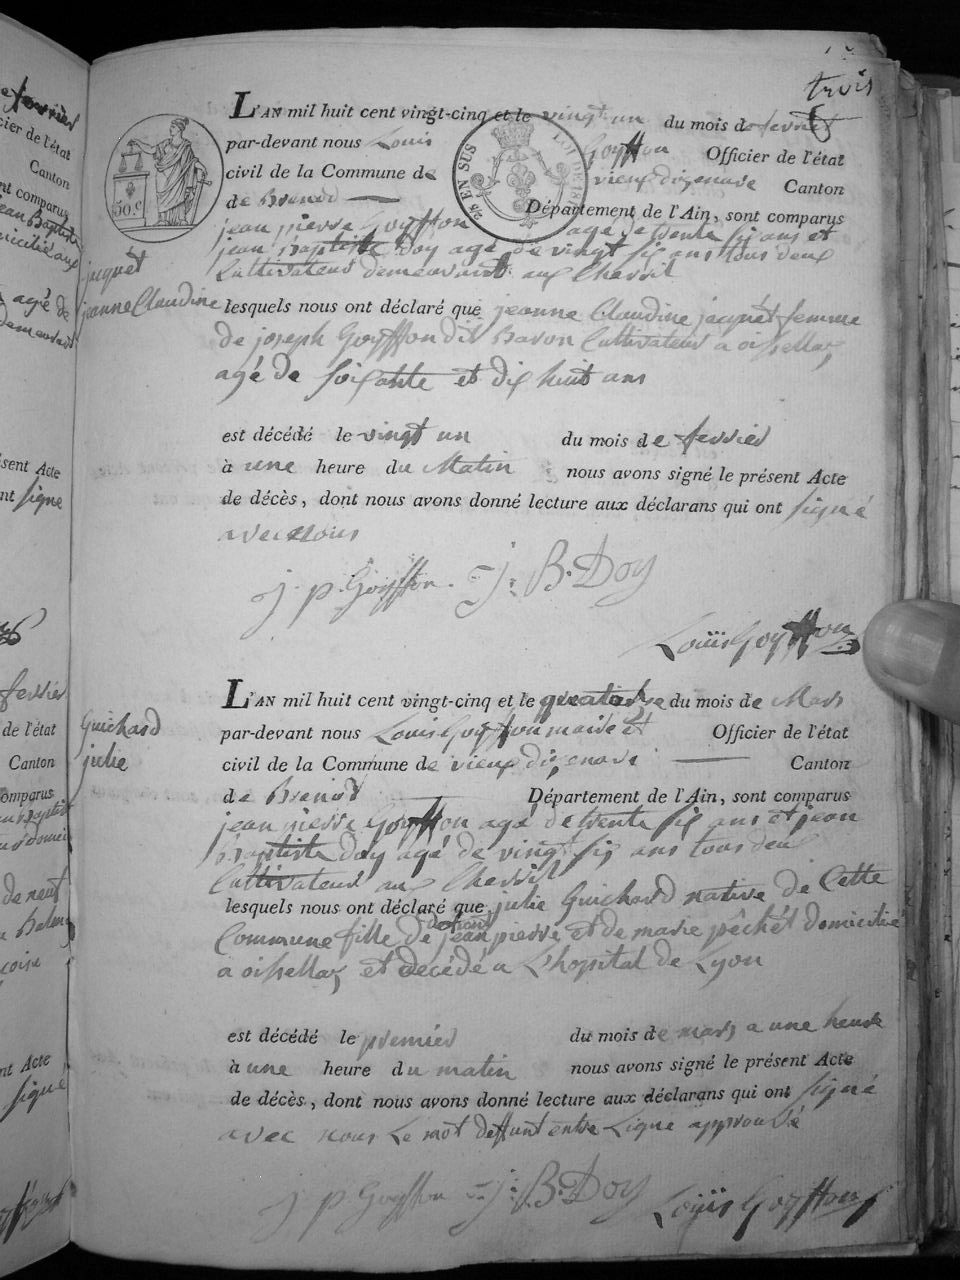 trois
L'AN mil huit cent vingt-cinq et le vingt un du mois de fevrier
par-devant nous Louis Goyffon Officier de l'état
civil de la Commune de vieux dizenave Canton
de Brenod Département de l'Ain, sont comparus
jean pierre Goyffon agé de trente six ans et
jean baptiste Doy agé de vingt six ans tous deux
Cultivateur demeurant aux Cherril
juquet
jeanne Claudine
lesquels nous ont déclaré que jeanne Claudine jeaquet femme
de joseph Goyffon dit Baron Cultivateur a oissellaz
agé de soixante et dix huit ans
est décédé le vingt un du mois de fevrier
à une heure du Matin nous avons signé le présent Acte
de décès, dont nous avons donné lecture aux déclarans qui ont signé
avec nous
j. p. Goyffon J: B. Doy
Louis Goyffon
L'AN mil huit cent vingt-cinq et le quatorze du mois de Mars
par-devant nous Louis Goyffon maire et Officier de l'état
civil de la Commune de vieux dizenave Canton
de Brenod Département de l'Ain, sont comparus
Guichard
julie
jean pierre Goyffon agé de trente six ans et jean
baptiste doy agé de vingt six ans tous deux
Cultivateur aux Cherril
lesquels nous ont déclaré que julie Guichard native de Cette
Commune fille de jean pierre et de marie pêchet domicilié
a oissellaz et decédé a L'hopital de Lyon
est décédé le premier du mois de mars a une heure
à une heure du matin nous avons signé le présent Acte
de décès, dont nous avons donné lecture aux déclarans qui ont signé
avec nous Le mot deffunt entre Ligne approuvé
j p Goyffon J: B. Doy Louis Goyffon